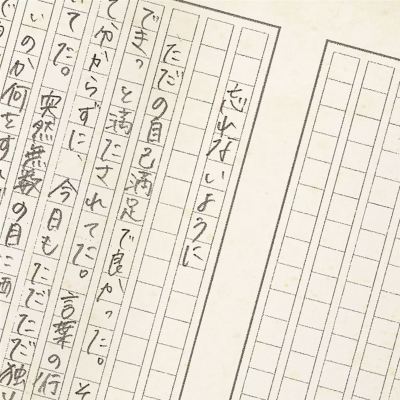 忘れないように
ただの自己満足で良かった。そ
できっと満たされてた。言葉の行
てわからずに、今日もただただ独
いてた。突然無数の目に
いのか何をすれ